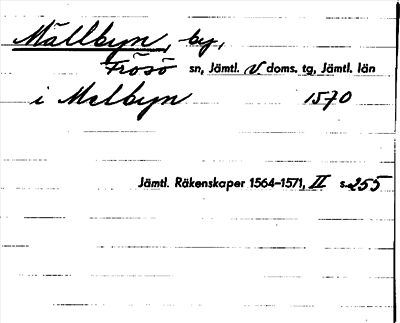 Mällbyn, by,
Frösö sn, Jämtl. V. doms. tg, Jämtl. län
i Melbyn 1570
Jämtl. Räkenskaper 1564–1571, II s. 255